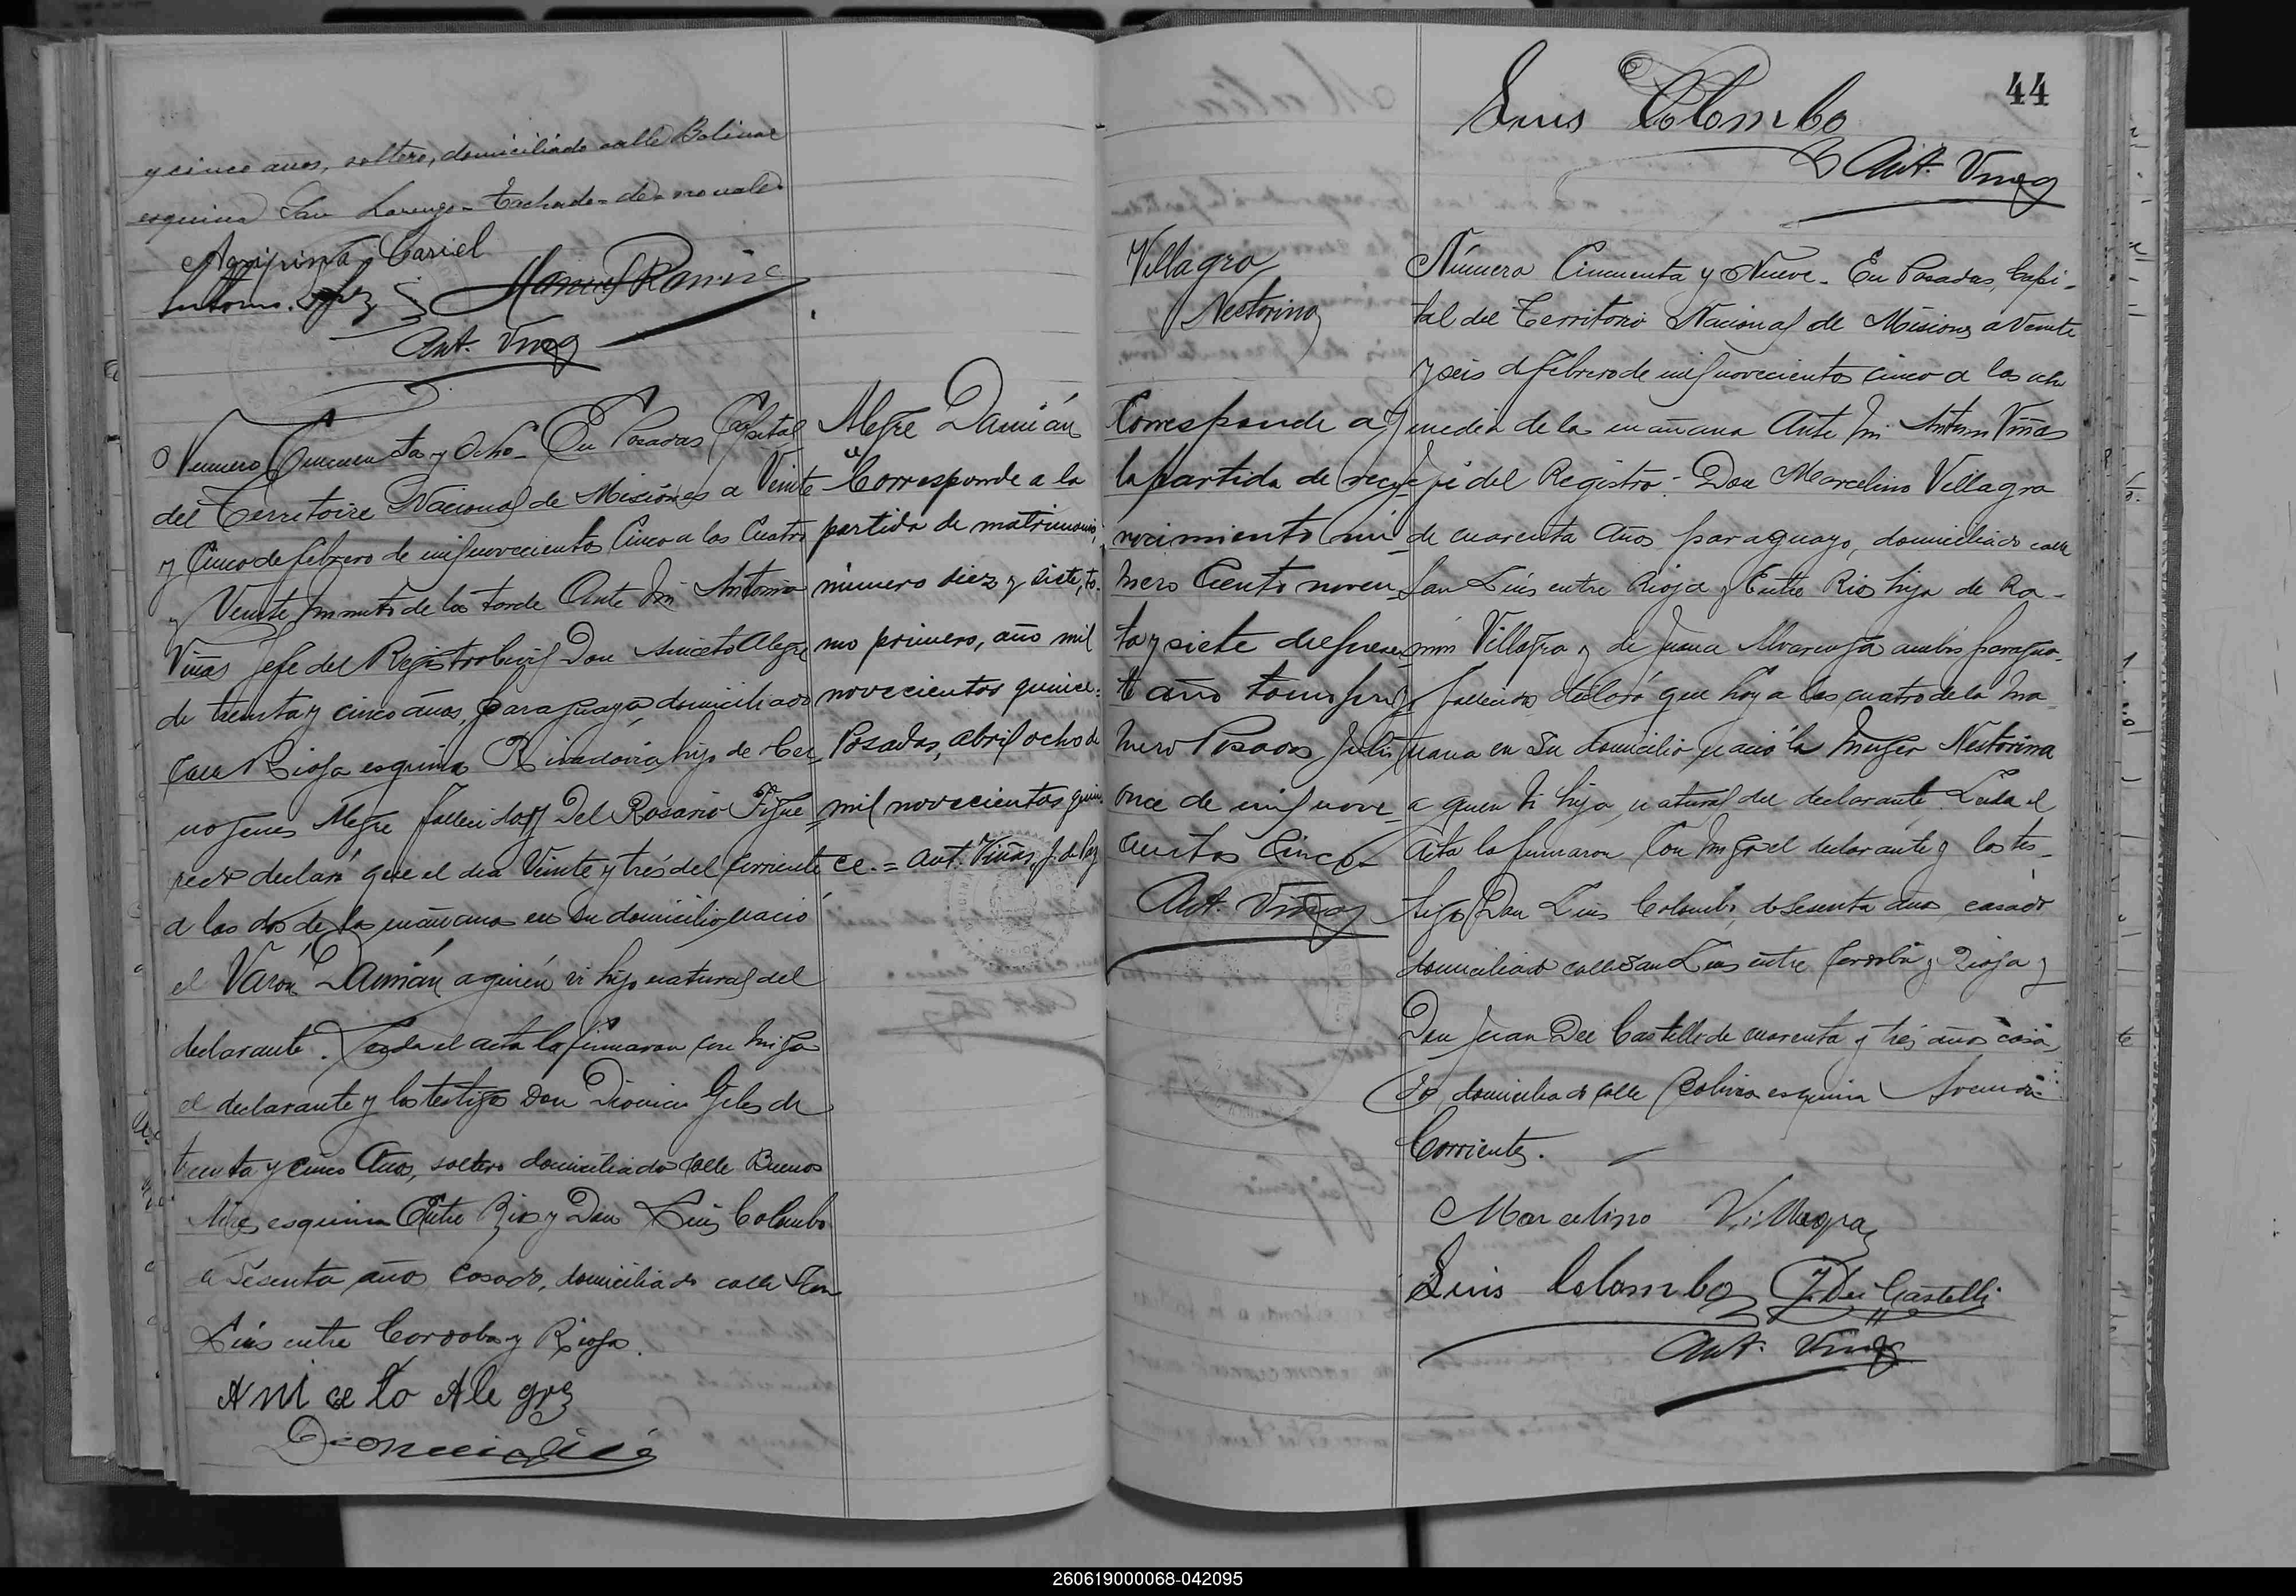 y cinco años, soltero, domiciliado calle Bolivar
esquina San Lorenzo = Tachado = de = no vale =
Agripina Cariel
Manuel Ramire
Ant. Viñas
Numero Cincuenta y Ocho - En Posadas Capital
del Territorio Nacional de Misiones a Veinte
y Cinco de febrero de mil novecientos Cinco a las Cuatro
y Veinte minutos de la tarde Ante Mi Antonio
Viñas Jefe del Registro Civil Don Aniceto Alegre
de treinta y cinco años, paraguayo domiciliado
calle Rioja esquina Rivadavia, hijo de Her
nogenes Alegre fallecido y Del Rosario Figue
redo declaró que el dia Veinte y trés del corriente
a las dos de la mañana en su domicilio nació
el Varón Damián a quién vi hijo natural del
declarante. Leida el acta la firmaron con migo
el declarante y los testigos Don Dionicio Giles de
treinta y cinco Años, soltero domiciliado calle Buenos
Aires esquina Entre Rios y Don Luis Colombo
de Sesenta años Casado, domiciliado calle San
Luis entre Cordoba y Rioja.
Aniceto Alegre
Alegre Damián
Corresponde a la
partida de matrimonio,
número diez y siete, to-
mo primero, año mil
novecientos quince =
Posadas, abril ocho de
mil novecientos quin
ce. = Ant. Viñas, J. de Paz
44
Luis Colombo
Ant. Viñas
Villagra
Nectorina
Corresponde a
la partida de reco
nocimiento nú
mero Ciento noven
ta y siete del presen
te año tomo pri
mero Posadas Julio
once de mil nove
cientos Cinco -
Ant. Viñas
Número Cincuenta y Nueve - En Posadas, Capi-
tal del Territorio Nacional de Misiones a Veinte
y seis de febrero de mil novecientos cinco a las ocho
y media de la mañana Ante Mi Antonio Viñas
Jefe del Registro - Don Marcelino Villagra
de cuarenta Años paraguayo, domiciliado calle
San Luis entre Rioja y Entre Rios hijo de Ra-
món Villagra y de Juana Alvarenga ambos paragua-
yos fallecidos declaró que hoy a las cuatro de la ma
ñana en su domicilio nació la Mujer Nectorina
a quien vi hija natural del declarante. Leida el
Acta la firmaron Con Migo el declarante y los tes-
tigos Don Luis Colombo, de sesenta años, casado
domiciliado calle San Luis entre Cordoba y Rioja y
Don Juan Dei Castelli de cuarenta y trés años casa
do, domiciliado calle Bolivar esquina Avenida
Corrientes.
Marcelino Villagra
Luis Colombo J. Dei Castelli
Ant. Viñas
260619000068-042095